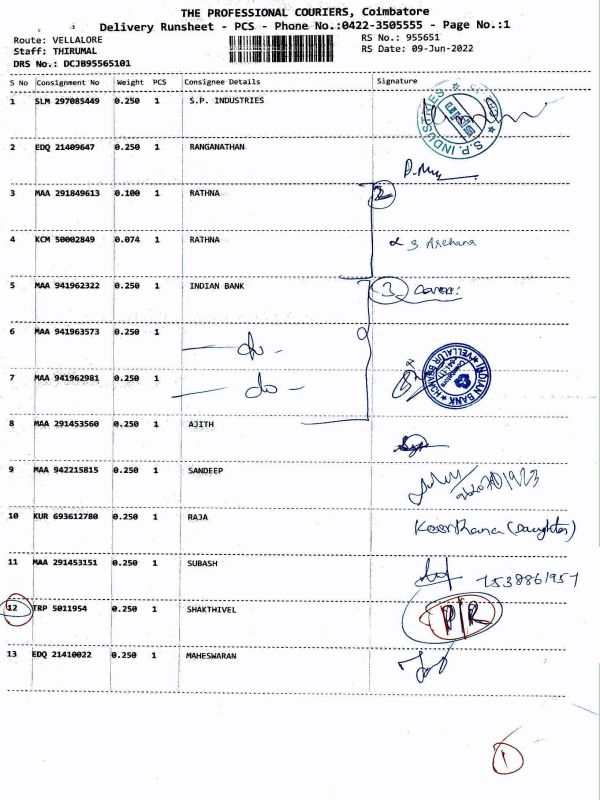 THE PROFESSIONAL COURIERS, Coimbatore
Delivery Runsheet - PCS - Phone No.:0422-3505555 - Page No.:1
Route: VELLALORE RS No.: 955651
Staff: THIRUMAL RS Date: 09-Jun-2022
DRS No.: DCJB95565101
S No Consignment No Weight PCS Consignee Details Signature
1 SLM 297085449 0.250 1 S.P. INDUSTRIES
S.P. INDUSTRIES
2 EDQ 21409647 0.250 1 RANGANATHAN
3 MAA 291849613 0.100 1 RATHNA 2
4 KCM 50002849 0.074 1 RATHNA S. Archana
5 MAA 941962322 0.250 1 INDIAN BANK 3 Covers:
6 MAA 941963573 0.250 1 - do -
7 MAA 941962981 0.250 1 - do -
INDIAN BANK VELLALUR BRANCH
8 MAA 291453560 0.250 1 AJITH
9 MAA 942215815 0.250 1 SANDEEP
10 KUR 693612780 0.250 1 RAJA (Daughter)
11 MAA 291453151 0.250 1 SUBASH 7538861957
12 TRP 5011954 0.250 1 SHAKTHIVEL P/R
13 EDQ 21410022 0.250 1 MAHESWARAN
1